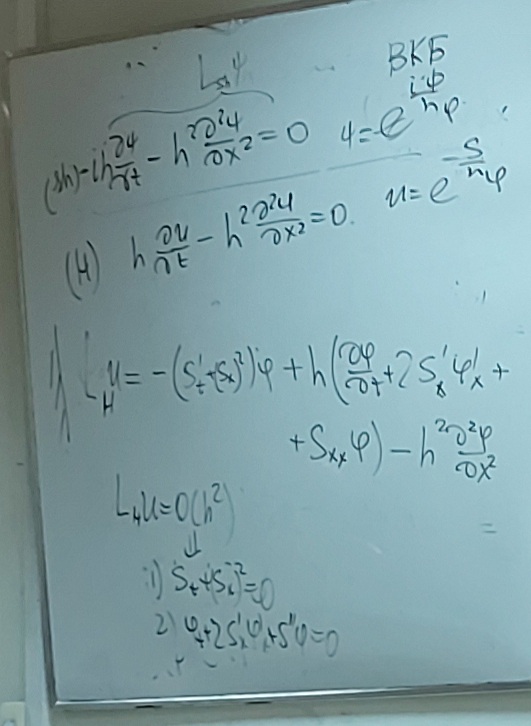 L_{Sh}ψ
ВКБ
(Sh) -ih ∂ψ/∂t - h² ∂²ψ/∂x² = 0   ψ = e^{iΦ/h} φ
(H) h ∂u/∂t - h² ∂²u/∂x² = 0.   u = e^{-S/h} φ
L_H u = -(S'_t + (S_x)²)φ + h(∂φ/∂t + 2S'_x φ'_x +
+ S_{xx}φ) - h² ∂²φ/∂x²
L_H u = O(h²)
⇓
1) S_t + (S_x)² = 0
2) φ_t + 2S'_x φ'_x + S''φ = 0